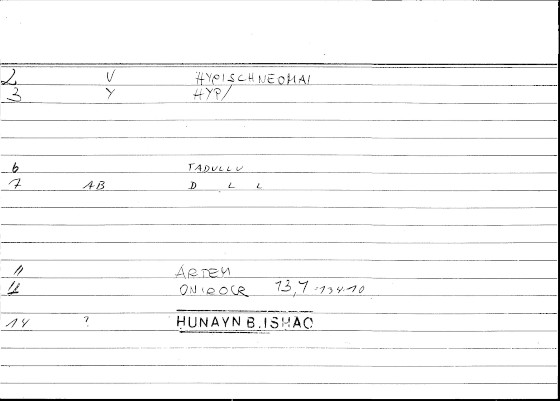 2 V HYPISCHNEOMAI
3 Y HYP/
6 TADULLU
7 AB D L L
11 ARTEM
12 ONIROCR 13,7-134.10
14 ? HUNAYN B.ISHAQ